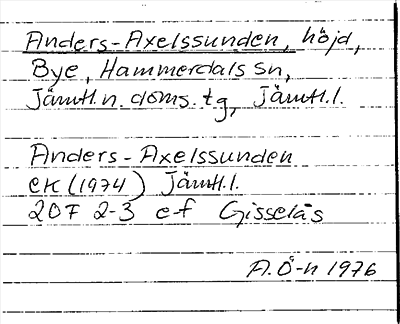 Anders-Axelssunden, höjd,
Bye, Hammerdals sn,
Jämtl. n. doms. tg, Jämtl. l.
Anders-Axelssunden
EK (1974) Jämtl. l.
20F 2-3 e-f Gisselås
A. Ö-n 1976